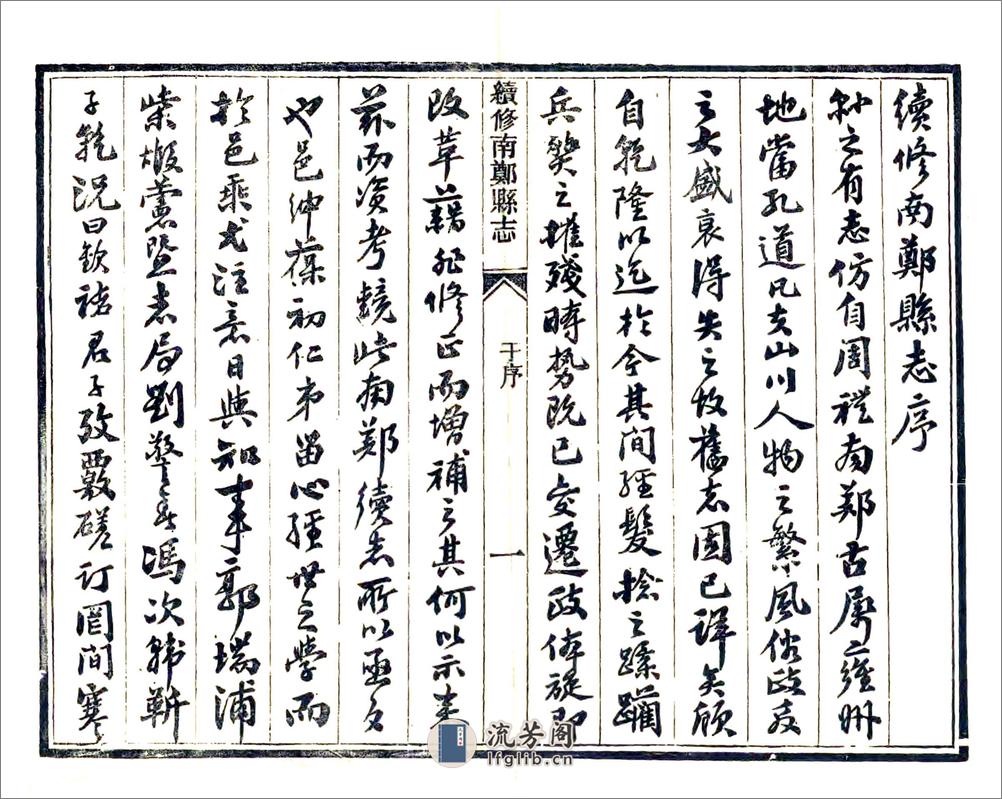 續修南鄭縣志序
之有志仿自周禮南鄭古屬雍州
地當孔道凡夫山川人物之繁風俗政教
之大盛衰得失之故舊志固已詳矣顧
自乾隆以迄於今其間經髮捻之蹂躪
兵燹之摧殘時勢既已交遷政体旋即
改革藉非修正而增補之其何以示來
茲而資考鏡此南鄭續志所以亟々
也邑紳葆初仁弟留心經世之學而
於邑乘尤注意日與知事郭瑞浦
柴暨志局劉馮次韓靳
子乾況曰欽諸君子考覈磋訂罔間寒
續修南鄭縣志
序
一
流芳阁
lfglib.cn